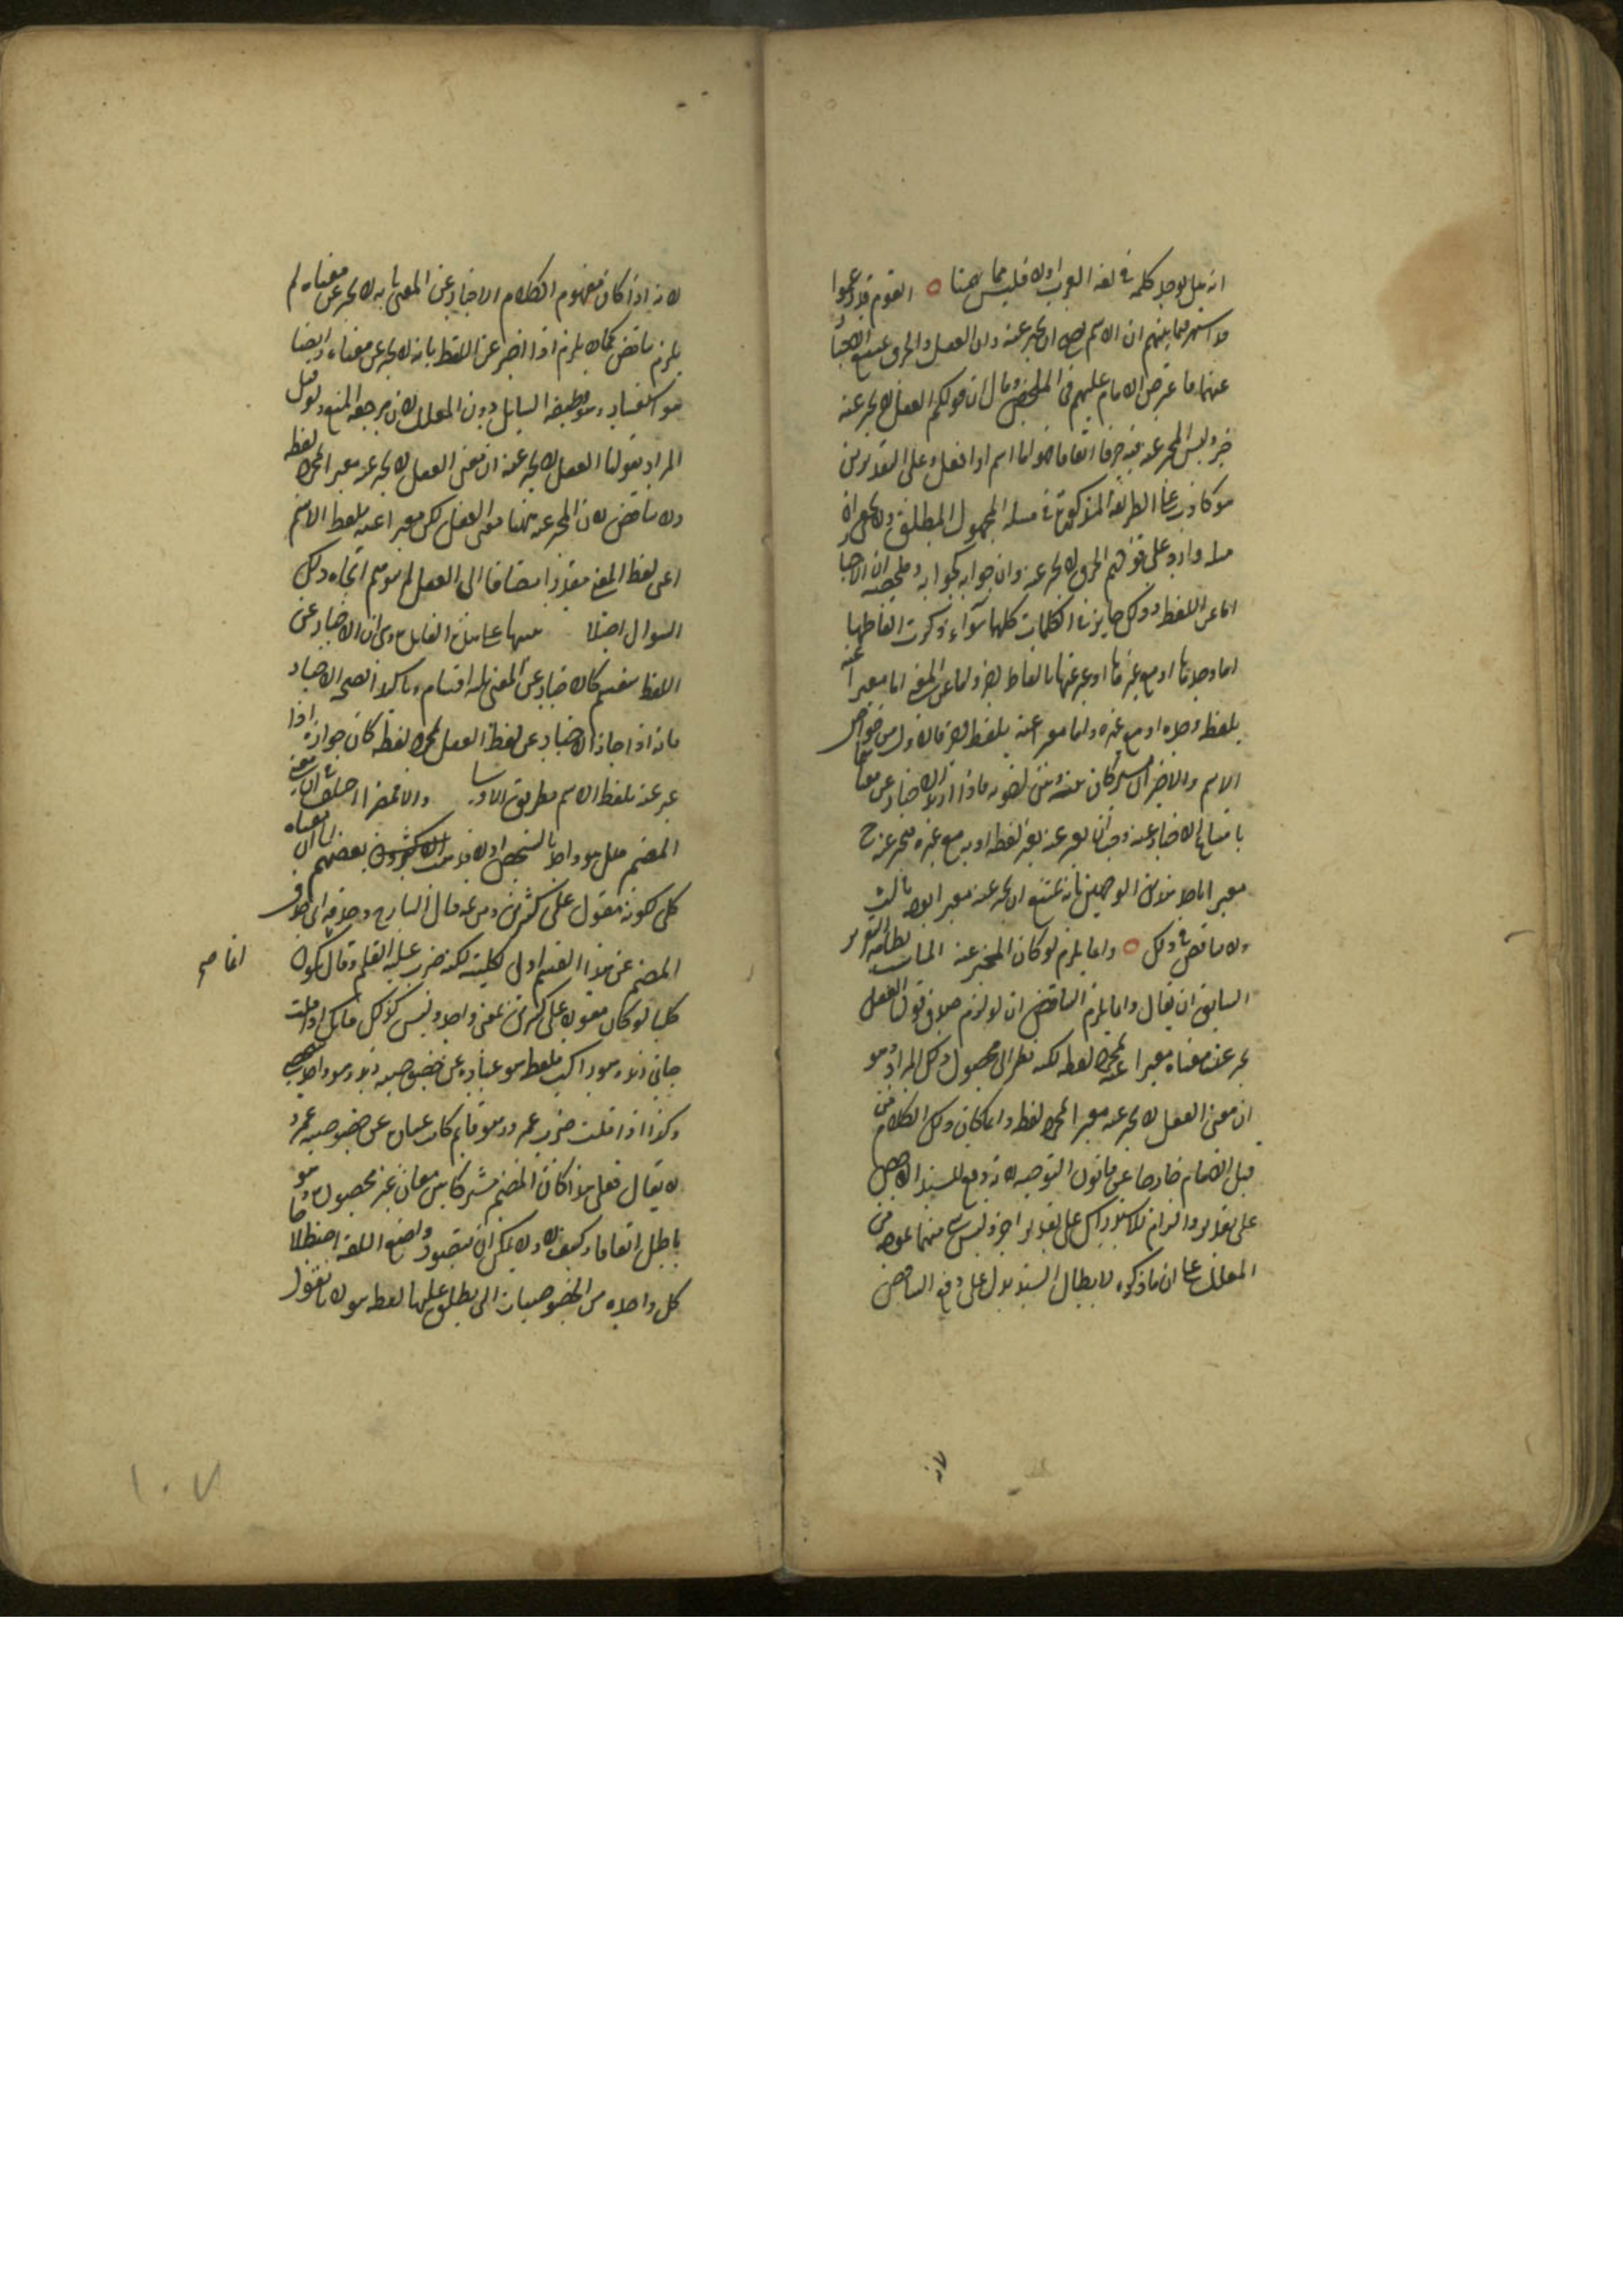 انه هل يوجد كلمة في لغة العرب اولا فليس مما يهمنا ٥ القوم قد زعموا
قد اشتهر فيما بينهم ان الاسم يصح ان يخبر عنه وان الفعل والحرف يمتنع الاخبار
عنهما فاعترض الامام عليهم في الملخص وقال ان قولكم الفعل لا يخبر عنه
خبر وليس المخبر عنه فيه حرفا اتفاقا فهو اما اسم او فعل وعلى التقديرين
هو كاذب على الطريقة المذكورة في مسئلة المجهول المطلق ولا يخفى ان
مثله وارد على قولهم الحرف لا يخبر عنه وان جوابه كجوابه وملخصه ان الاخبار
اما عن اللفظ وذلك جايز في الكلمات كلها سواء ذكرت الفاظها
اما وحدها او مع غيرها او عبر عنها بالفاظ اخر واما عن المعنى اما معبرا عنه
بلفظه وحده او مع غيره واما معبر عنه بلفظ اخر فالاول من خواص
الاسم والاخيران مشتركان بينه وبين اخويه فاذا اريد الاخبار عن معناهما
بامتناع الاخبار عنه وجب ان يعبر عنه بغير لفظه او به مع غيره فيخبر عنه ح
معبرا باحد هذين الوجهين بانه يمتنع ان يخبر عنه معبرا بوجه ثالث
ولا تناقض في ذلك ٥ وانما يلزم لو كان المخبر عنه المناسب بظاهر التقرير
السابق ان يقال وانما يلزم التناقض ان لو لزم صدق قولنا الفعل
يخبر عن معناه معبرا عنه بمجرد لفظه لكنه نظر الى محصول ذلك المراد وهو
ان معنى الفعل لا يخبر عنه معبرا بمجرد لفظه وانما كان ذلك الكلام من
قبل الامام خارجا عن قانون التوجيه لانه دفع للسند الاخص
على تقدير والزام للاستدراك على تقدير اخر وليس شئ منهما بموجه من
المعلل على ان ما ذكره لابطال السند يدل على دفع التناقض
لانه اذا كان مفهوم الكلام الاخبار عن المعنى بانه لا يخبر عن معناه لم
يلزم تناقض كما لا يلزم اذا اخبر عن اللفظ بانه لا يخبر عن معناه وايضا
هو استفسار وهو وظيفة السايل دون المعلل لان مرجعه المنع ولو قيل
المراد بقولنا الفعل لا يخبر عنه ان معنى الفعل لا يخبر عنه معبرا بمجرد لفظه
ولا تناقض لان المخبر عنه ههنا معنى الفعل لكن معبرا عنه بلفظ الاسم
اعنى لفظ المعنى مقدرا مضافا الى الفعل لم يتوهم اتجاه ذلك
السوال اصلا منها على مثل القايل وى ان الاخبار عن
اللفظ ينقسم كالاخبار عن المعنى الى اقسام وتاكيدا لصحة الاخبار
بانه اذا جاز الاخبار عن لفظ الفعل بمجرد لفظه كان جوازه اذا
عبر عنه بلفظ الاسم بطريق الاولى والا فمضمرا اختلف في ان معنى
المضمر هل هو واحد بالشخص اولا فذهب الاكثرون بعضهم الى ان معناه
كلى لكونه مقولا على كثيرين ومن ثمه قال الشارح وحذفه اى حذف
المضمر عن هذا القسم اولى لكليته لكنه ضرب عليه القلم وقال يكون انما صح
كليا لو كان مقولا على كثيرين بمعنى واحد وليس كذلك فانك اذا قلت
جاءنى زيد وهو راكب فلفظ هو عبارة عن خصوصية زيد وهو واحد بالشخص
وكذا اذا قلت ضرب عمرو وهو قايم كان عبارة عن خصوصية عمرو
لا يقال فعلى هذا كان المضمر مشتركا بين معان غير محصورة وهو
باطل اتفاقا وكيف لا ولا يمكن ان يتصور واضع اللغة اصطلاحا
كل واحدة من الخصوصيات التى يطلق عليها لفظ هو لانا نقول
١٠٧